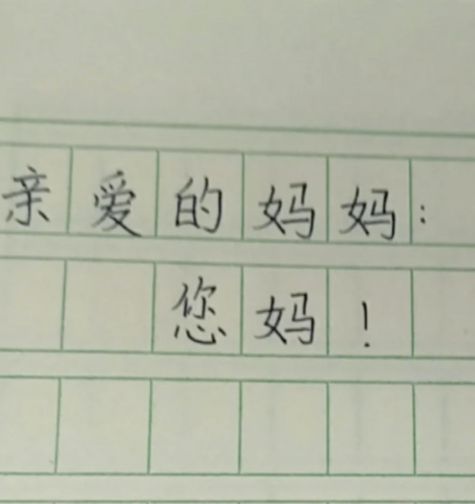 亲爱的妈妈：
您妈！